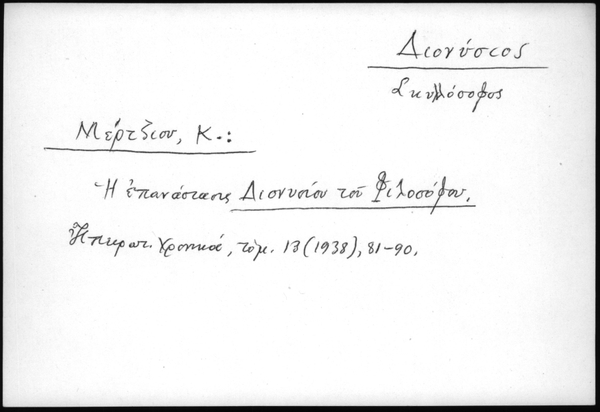 Διονύσιος
Σκυλλόσοφος
Μέρτζιου, Κ.:
Ἡ ἐπανάστασις Διονυσίου τοῦ Φιλοσόφου.
Ἠπειρωτ. Χρονικά, τόμ. 13 (1938), 81-90.